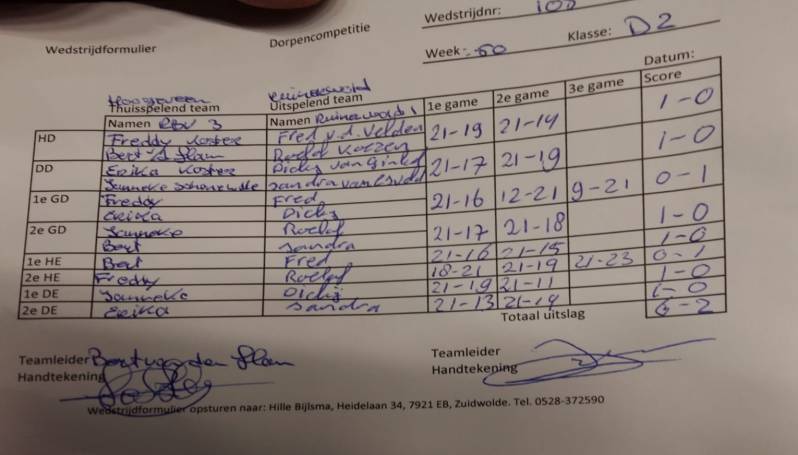 Wedstrijdformulier Dorpencompetitie Wedstrijdnr: 100
Week: 50 Klasse: D2
Datum:
Hoogeveen Ruinerwold
Thuisspelend team Uitspelend team 1e game 2e game 3e game Score
Namen RBV 3 Namen Ruinerwold 1
HD Freddy Koster Fred v.d. Velden 21-19 21-14 1-0
Bert Roelof
DD Erika Koster Dicky van Ginkel 21-17 21-19 1-0
Janneke Sandra
1e GD Freddy Fred 21-16 12-21 9-21 0-1
Erika Dicky
2e GD Janneke Roelof 21-17 21-18 1-0
Bert Sandra
1e HE Bert Fred 21-16 21-15 1-0
2e HE Freddy Roelof 18-21 21-19 21-23 0-1
1e DE Janneke Dicky 21-19 21-11 1-0
2e DE Erika Sandra 21-13 21-14 1-0
Totaal uitslag 6-2
Teamleider Teamleider
Handtekening Handtekening
Wedstrijdformulier opsturen naar: Hille Bijlsma, Heidelaan 34, 7921 EB, Zuidwolde. Tel. 0528-372590